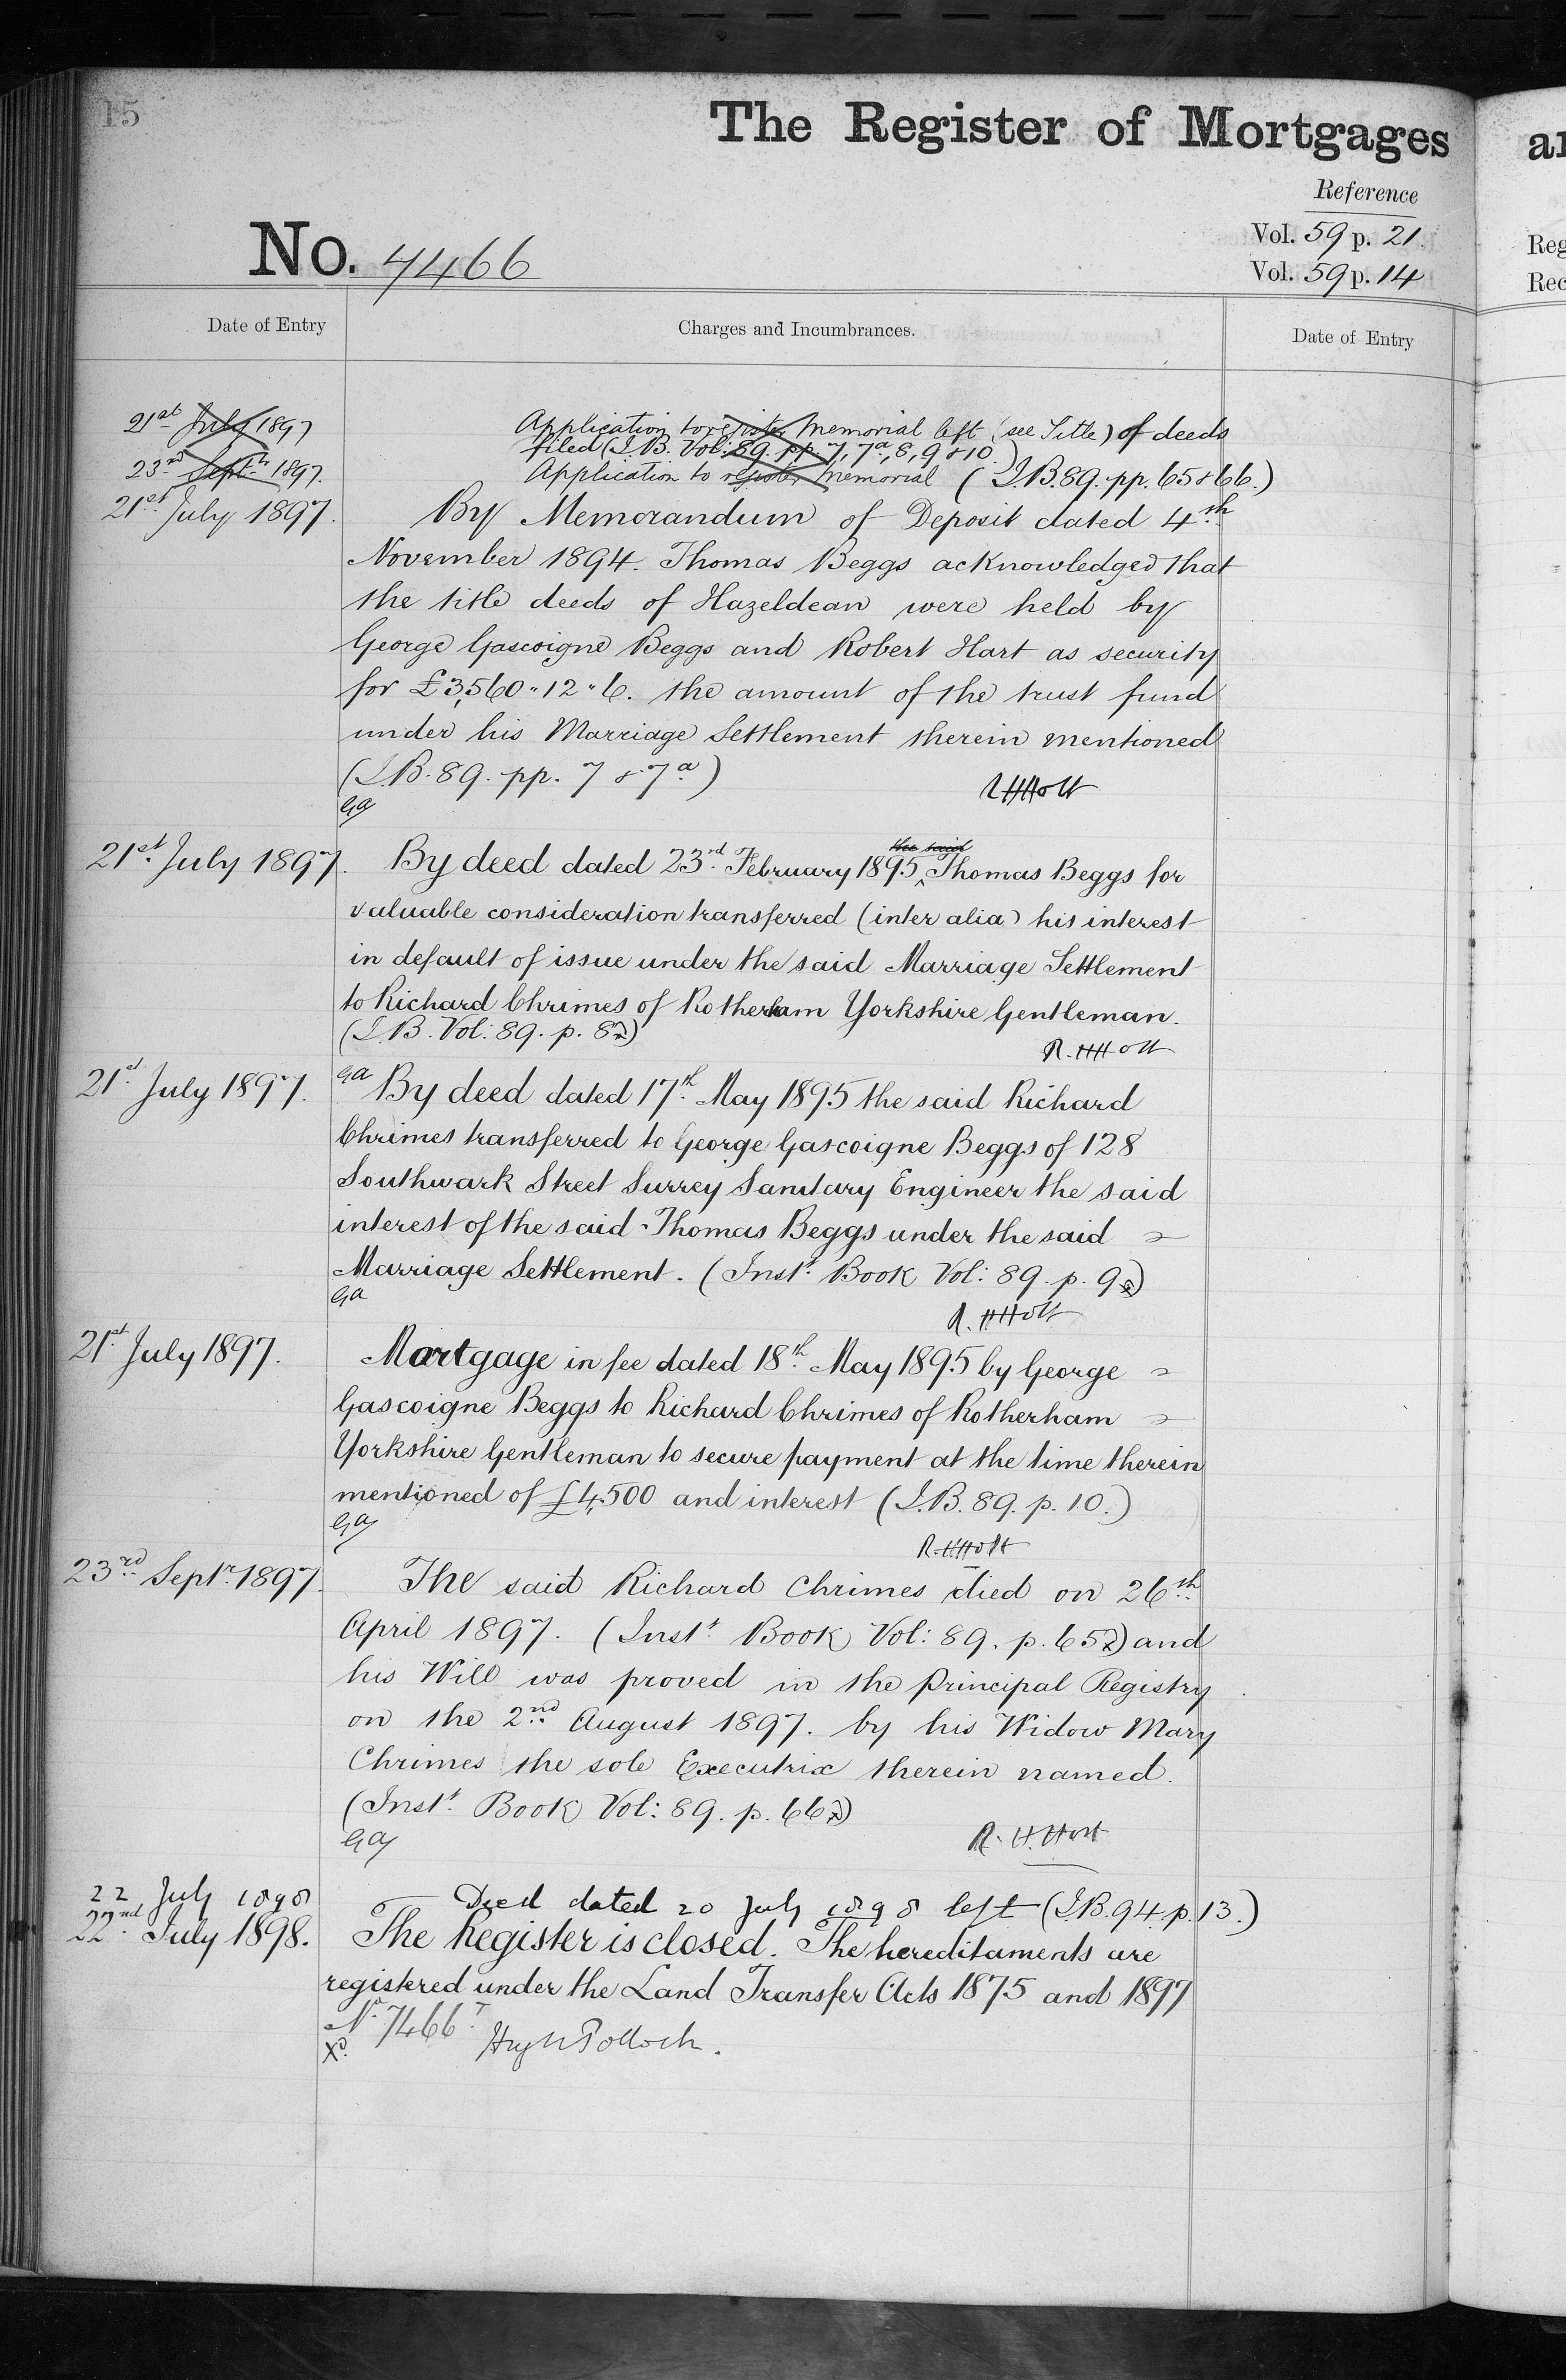 15
The Register of Mortgages
Reference
No. 7466
Vol. 59 p. 21
Vol. 59 p. 14
Date of Entry
Charges and Incumbrances.
Date of Entry
21st July 1897
Application to register Memorial left (see Title) of deeds
filed (I.B. Vol: 89. pp. 7, 7a, 8, 9 & 10.)
23rd Septr 1897.
Application to register Memorial (I.B. 89. pp. 65 & 66.)
21st July 1897.
By Memorandum of Deposit dated 4th
November 1894. Thomas Beggs acknowledged that
the title deeds of Hazeldean were held by
George Gascoigne Beggs and Robert Hart as security
for £3,560 " 12 " 6. the amount of the trust fund
under his Marriage Settlement therein mentioned
(I.B. 89. pp. 7 & 7a)
R.H.Holt
GA
21st July 1897.
By deed dated 23rd February 1895 the said Thomas Beggs for
valuable consideration transferred (inter alia) his interest
in default of issue under the said Marriage Settlement
to Richard Chrimes of Rotherham Yorkshire Gentleman.
(I.B. Vol: 89. p. 8)
R.H.Holt
21st July 1897.
GA By deed dated 17th May 1895 the said Richard
Chrimes transferred to George Gascoigne Beggs of 128
Southwark Street Surrey Sanitary Engineer the said
interest of the said Thomas Beggs under the said
Marriage Settlement. (Inst. Book Vol: 89. p. 9)
GA
R.H.Holt
21st July 1897.
Mortgage in fee dated 18th May 1895 by George
Gascoigne Beggs to Richard Chrimes of Rotherham
Yorkshire Gentleman to secure payment at the time therein
mentioned of £4,500 and interest (I.B. 89. p. 10.)
GA
R.H.Holt
23rd Septr 1897.
The said Richard Chrimes died on 26th
April 1897. (Inst. Book Vol: 89. p. 65) and
his Will was proved in the Principal Registry
on the 2nd August 1897. by his Widow Mary
Chrimes the sole Executrix therein named.
(Inst. Book Vol: 89. p. 66)
GA
R.H.Holt
22 July 1898
Deed dated 20 July 1898 left (I.B. 94. p. 13.)
22nd July 1898.
The Register is closed. The hereditaments are
registered under the Land Transfer Acts 1875 and 1897
No. 7466T
Xd.
Hugh Pollock.